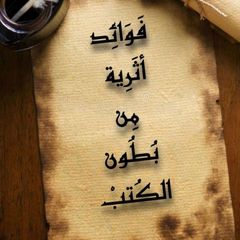 فَوَائِد
أثَرِية
مِن
بُطُون
الكُتبْ